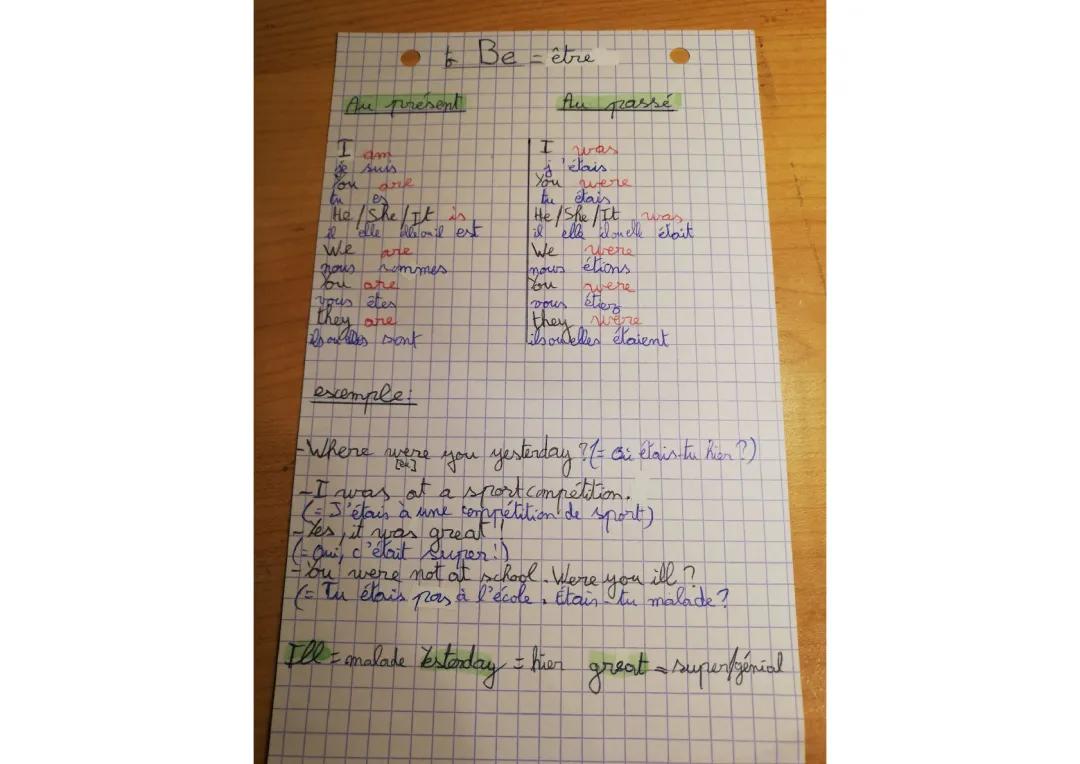 to Be = être
Au présent
I am
je suis
You are
tu es
He/She/It is
il elle elle ou il est
We are
nous sommes
You are
vous êtes
they are
ils ou elles sont
Au passé
I was
j'étais
You were
tu étais
He/She/It was
il elle il ou elle était
We were
nous étions
You were
vous étiez
they were
ils ou elles étaient
exemple:
- Where were you yesterday? (= Où étais-tu hier?)
- I was at a sport compétition.
(= J'étais à une compétition de sport)
- Yes, it was great!
(= Oui, c'était super!)
- You were not at school. Were you ill?
(= Tu étais pas à l'école. Étais-tu malade?
Ill = malade Yesterday = hier great = super/génial